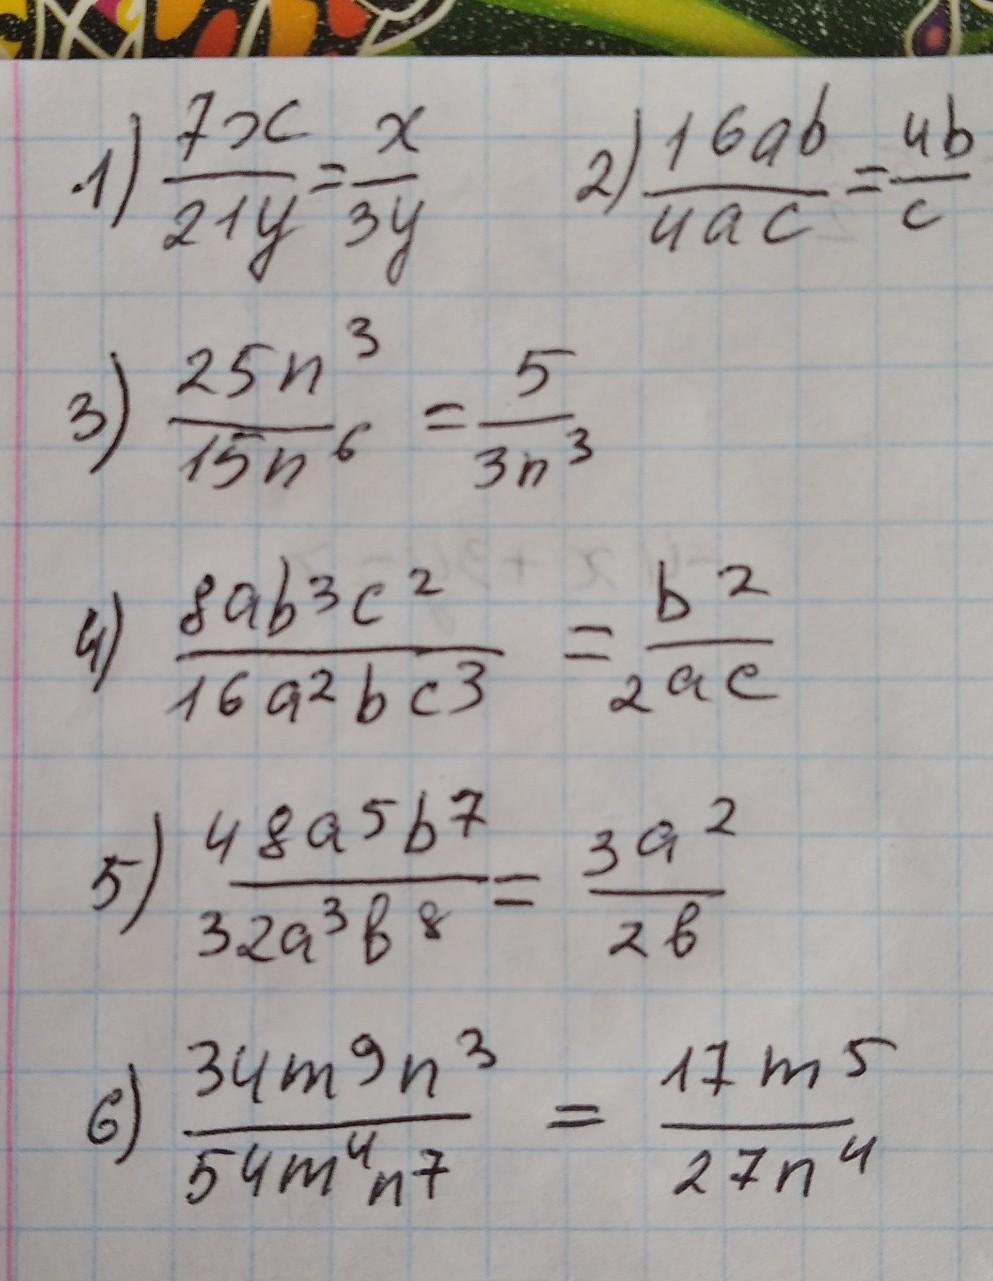 1) 7x/21y = x/3y 2) 16ab/4ac = 4b/c
3) 25n³/15n⁶ = 5/3n³
4) 8ab³c²/16a²bc³ = b²/2ac
5) 48a⁵b⁷/32a³b⁸ = 3a²/2b
6) 34m⁹n³/54m⁴n⁷ = 17m⁵/27n⁴